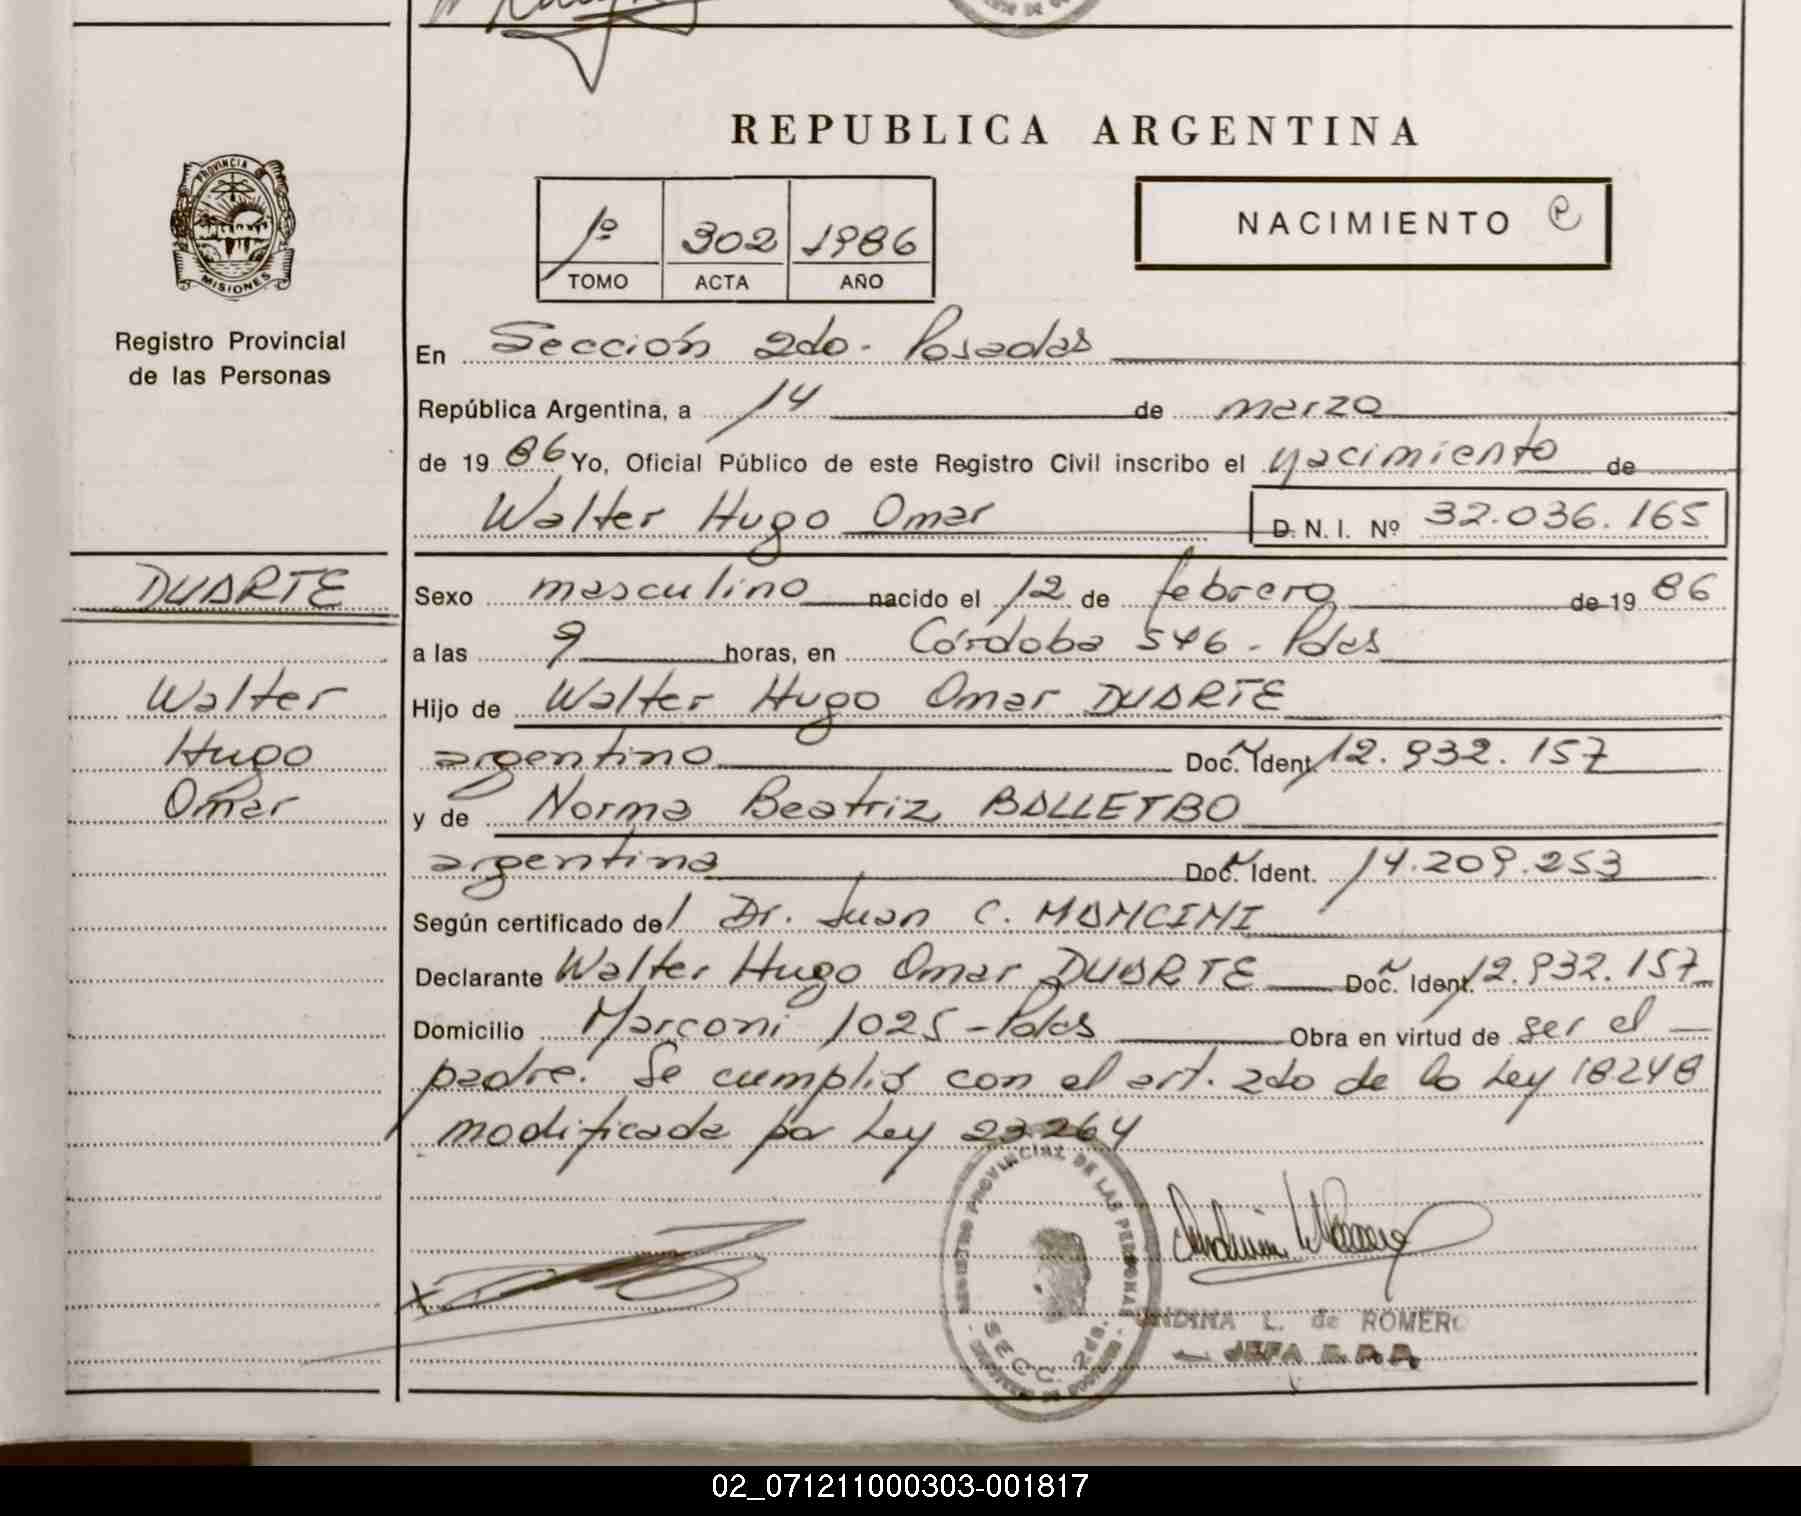 REPUBLICA ARGENTINA
PROVINCIA DE
MISIONES
Registro Provincial
de las Personas
1º 302 1986
TOMO ACTA AÑO
NACIMIENTO
En Sección 2do - Posadas
República Argentina, a 14 de marzo
de 1986 Yo, Oficial Público de este Registro Civil inscribo el nacimiento de
Walter Hugo Omar D. N. I. Nº 32.036.165
DUARTE
Walter
Hugo
Omar
Sexo masculino nacido el 12 de febrero de 1986
a las 9 horas, en Córdoba 546 - Pdas
Hijo de Walter Hugo Omar DUARTE
argentino Doc. Ident. 12.932.157
y de Norma Beatriz BALLETBO
argentina Doc. Ident. 14.209.253
Según certificado del Dr. Juan C. MANCINI
Declarante Walter Hugo Omar DUARTE Doc. Ident. 12.932.157
Domicilio Marconi 1025 - Pdas Obra en virtud de ser el
padre. Se cumplió con el art. 2do de la Ley 18248
modificada por Ley 23264
REGISTRO PROVINCIAL DE LAS PERSONAS
SECC. 2da.
UNDINA L. de ROMERO
JEFA R.P.P.
02_071211000303-001817